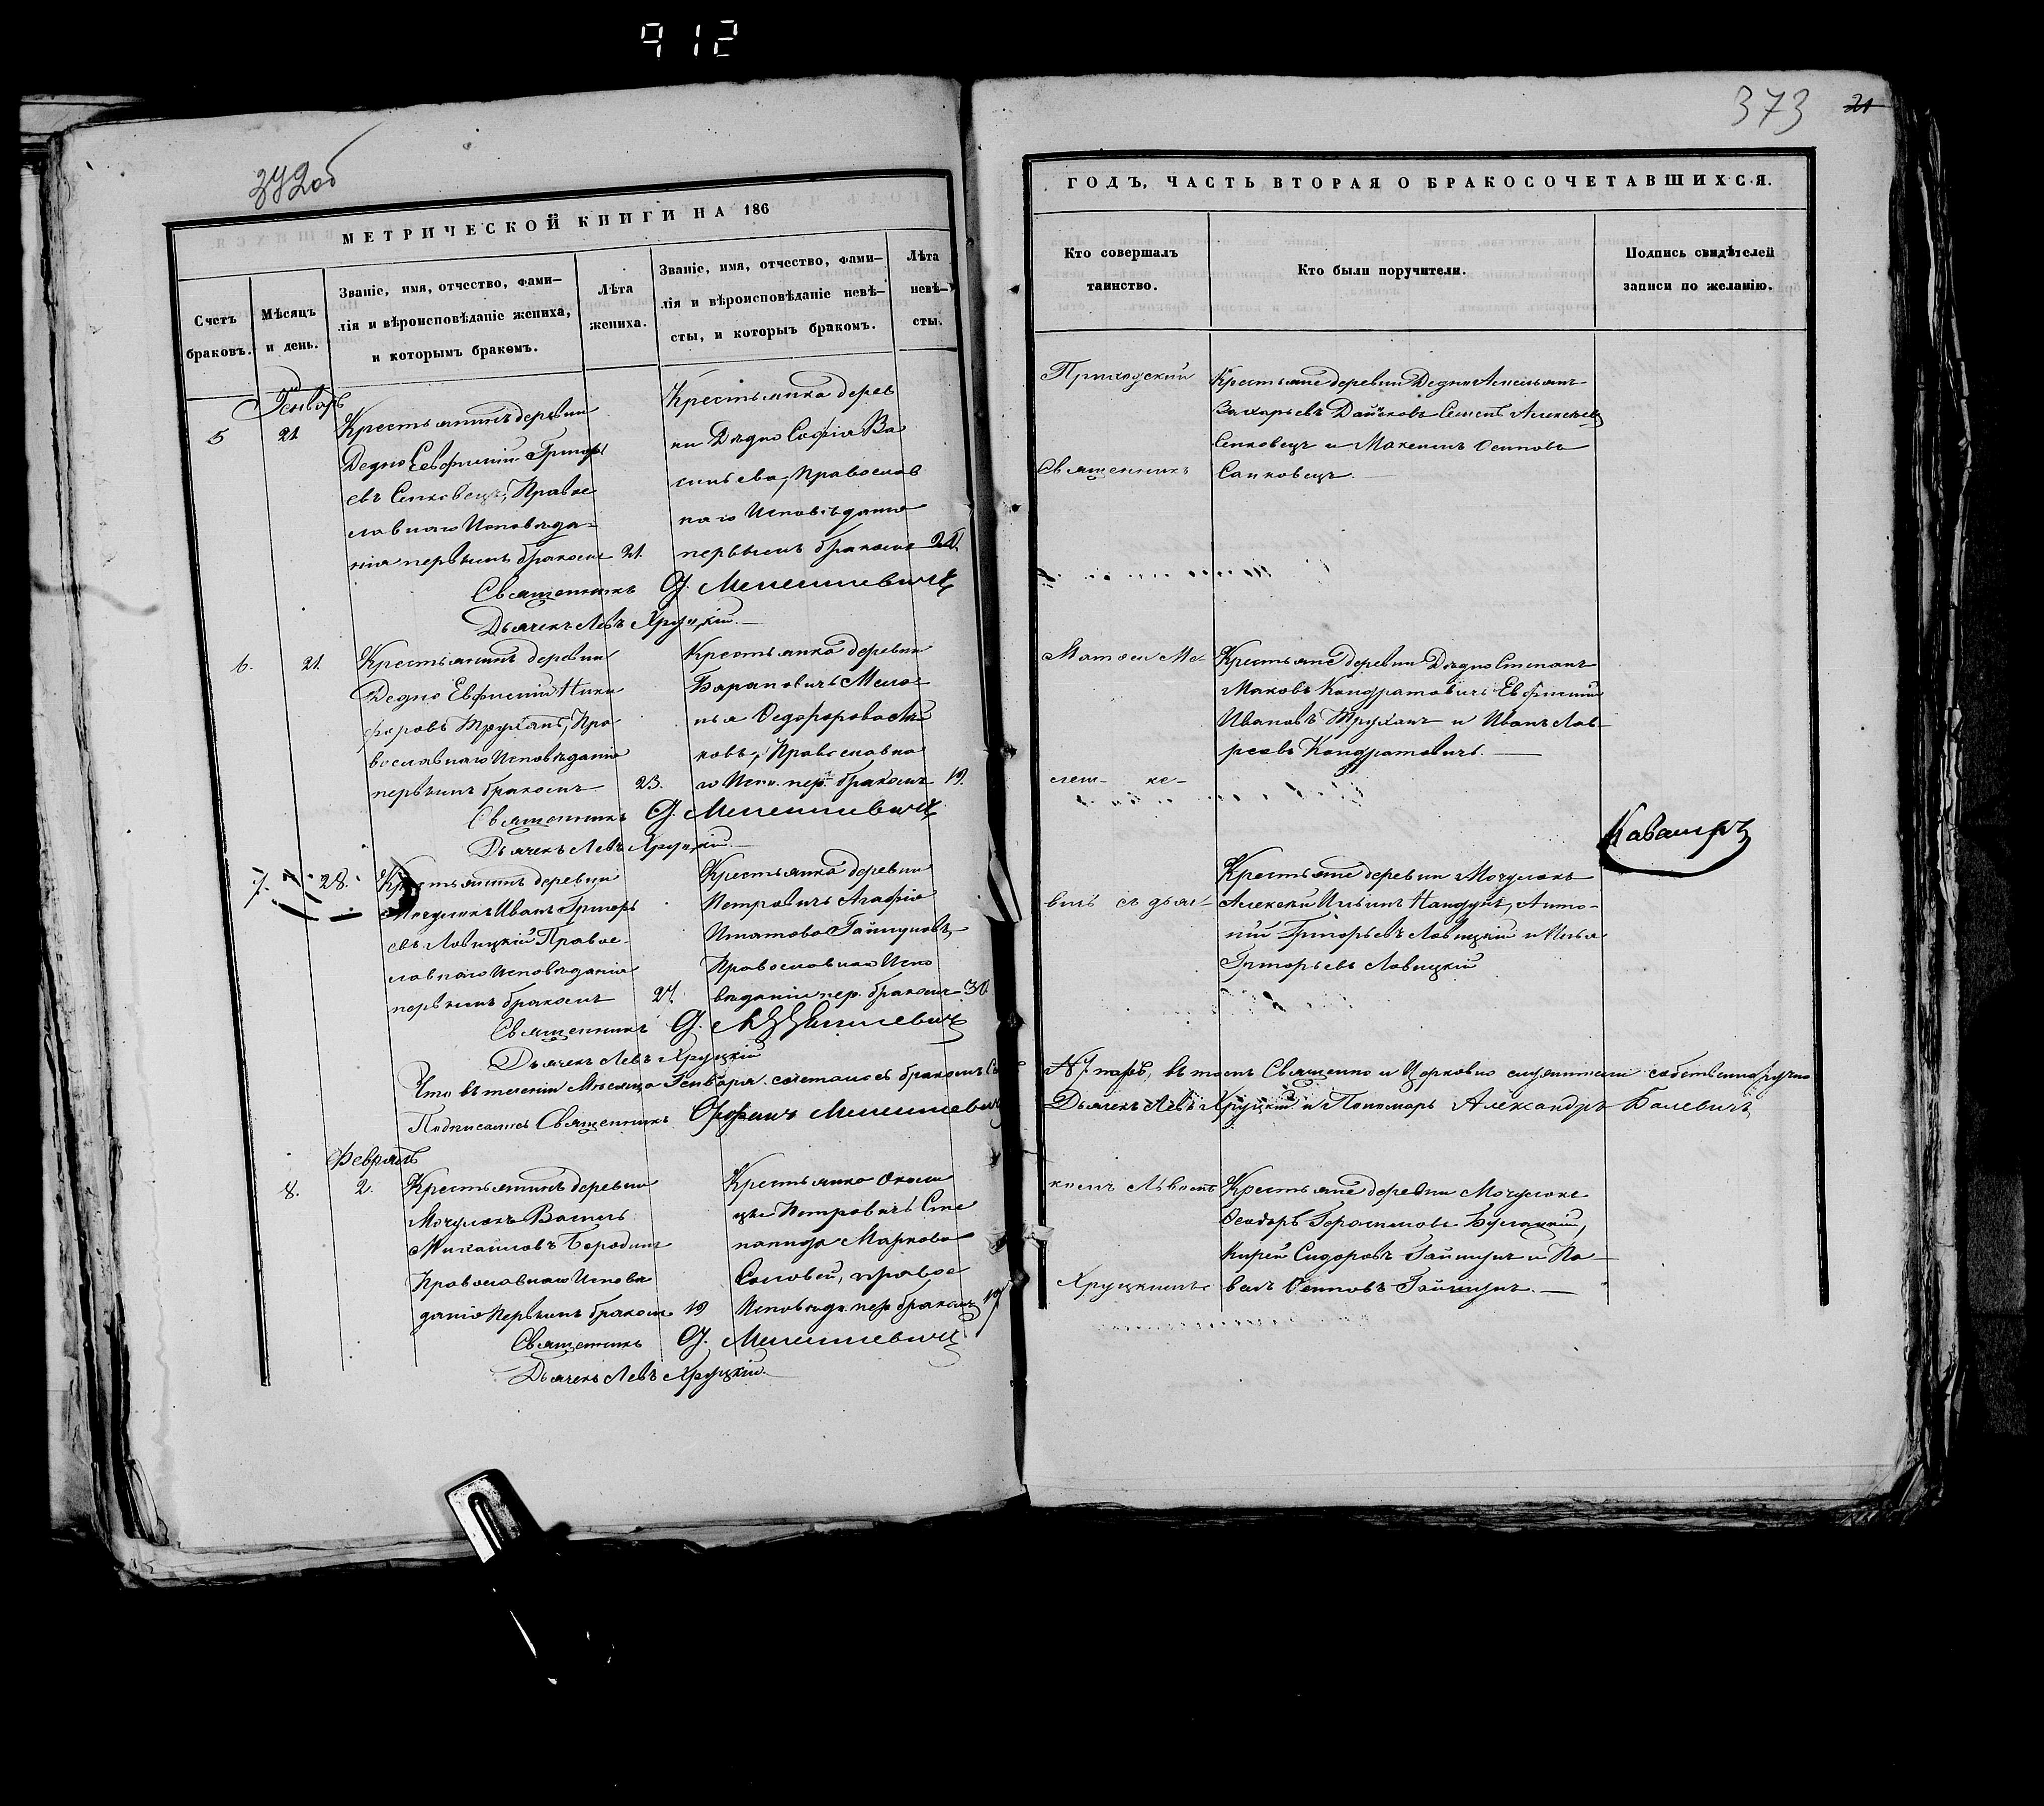 912
372об
МЕТРИЧЕСКОЙ КНИГИ НА 186
Счетъ браковъ.
Мѣсяцъ и день.
Званіе, имя, отчество, фами-
лія и вѣроисповѣданіе жениха,
и которымъ бракомъ.
Лѣта
жениха.
Званіе, имя, отчество, фами-
лія и вѣроисповѣданіе невѣ-
сты, и которыъ бракомъ.
Лѣта
невѣ-
сты.
Генварь
5
21
Крестьянинъ деревни
Дедно Евфимій Григорь
евъ Сенковецъ, Правос
лавнаго Исповѣда-
нія первымъ бракомъ
21.
Крестьянка дерев
ни Дѣдно Софія Ва
сильева, Православ
наго Исповѣданія
первымъ бракомъ
Священникъ
Дьячекъ Левъ Хруцкій.
6.
21.
Крестьянинъ деревни
Дедно Евфимій Ники
форовъ Труханъ, Пра
вославнаго Исповѣданія
первымъ бракомъ
23.
Крестьянка деревни
Барановичъ Мела
нья Ѳедорова
ковъ, Православна
го Испо. пер. бракомъ
19.
Священникъ
Дьячекъ Левъ Хруцкій.
7.
28.
Крестьянинъ деревни
Мочулокъ Иванъ Григорь
евъ Лавицкій Правос
лавнаго Исповѣданія
первымъ бракомъ
27.
Крестьянка деревни
Петровичъ Агафія
Игнатова
Православнаго Испо
вѣданія пер. бракомъ
30
Священникъ
Дьячекъ Левъ Хруцкій
Что въ теченіи Мѣсяца Генваря сочеталось бракомъ
Подписались Священникъ
Февраль
8.
2.
Крестьянинъ деревни
Мочулокъ Василь
Михайловъ Бородичъ
Православнаго Исповѣ
данія Первымъ бракомъ
19
Крестьянка Околи
цы Петровичъ Сте
панида Маркова
Соловей, правос
Исповѣда. пер бракомъ
19
Священникъ
Дьячекъ Левъ Хруцкій.
373
21
ГОДЪ, ЧАСТЬ ВТОРАЯ О БРАКОСОЧЕТАВШИХСЯ.
Кто совершалъ
таинство.
Кто были поручители.
Подпись свидѣтелей
записи по желанію.
Приходскій
Священникъ
Крестьяне деревни Дедно
Захарьевъ Семенъ Алексѣевъ
Сенковецъ и Максимъ Осиповъ
Санковецъ.
Крестьяне деревни Дѣдно Степанъ
Кондратовичъ Евфимій
Ивановъ Труханъ и Иванъ Лав-
Кондратовичъ.
Крестьяне деревни Мочулокъ
Алексѣй Ильинъ Анто-
ній Григорьевъ Лавицкій и Илья
Григорьевъ Лавицкій
въ томъ Священно и Церковно служители собственноручно
Дьячекъ Левъ Хруцкій и Пономарь Александръ Балевичъ
комъ Львомъ
Хруцкимъ
Крестьяне деревни Мочулокъ
Ѳеодоръ Герасимовъ
Кирей Сидоровъ Гайшунъ и Па-
велъ Осиповъ Гайшунъ.